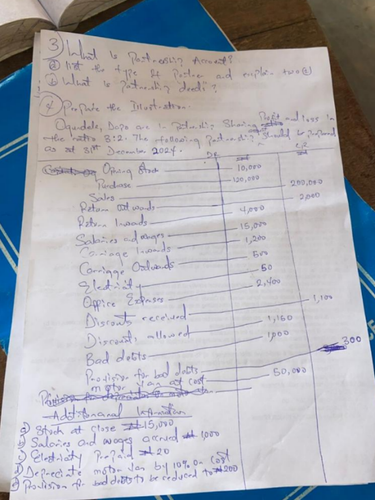 3) What is Partnership Account?
a) list the type of Partner and explain two (2)
b) What is Partnership deeds?
4) Prepare the Illustration.
Ogundele, Dayo are in Partnership Sharing Profit and loss in
the ratio 3:2. The following Partnership should be prepared
as at 31st December 2024.
DR CR
Opening Stock 10,000
Purchase 120,000
Sales 200,000
Return Outwards 2,000
Return Inwards 4,000
Salaries and wages 15,000
Carriage Inwards 1,200
Carriage Outwards 500
Electricity 50
Office Expenses 2,400
Discount received 1,100
Discount allowed 1,150
Bad debts 1,000
Provision for bad debts 300
motor van at cost 50,000
Additional Information
a) Stock at close ₦15,000
b) Salaries and wages accrued ₦1000
c) Electricity Prepaid ₦20
d) Depreciate motor van by 10% on cost
e) Provision for bad debts to be reduced to ₦200